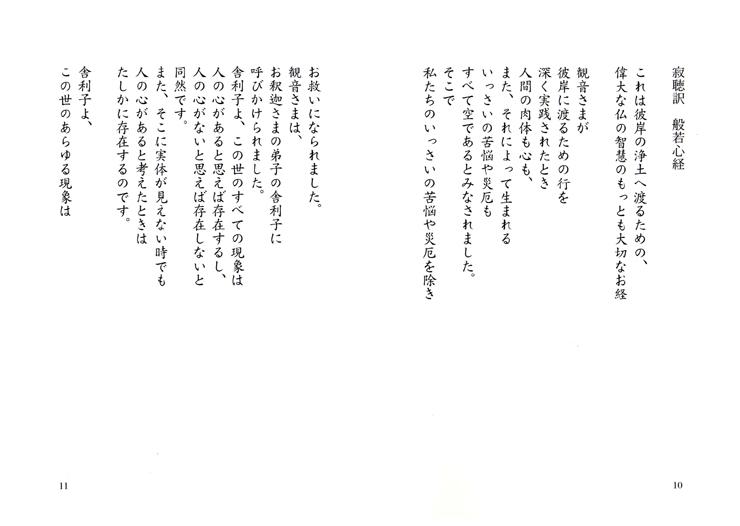 寂聴訳　般若心経
これは彼岸の浄土へ渡るための、
偉大な仏の智慧のもっとも大切なお経
観音さまが
彼岸に渡るための行を
深く実践されたとき
人間の肉体も心も、
また、それによって生まれる
いっさいの苦悩や災厄も
すべて空であるとみなされました。
そこで
私たちのいっさいの苦悩や災厄を除き
10
お救いになられました。
観音さまは、
お釈迦さまの弟子の舎利子に
呼びかけられました。
舎利子よ、この世のすべての現象は
人の心があると思えば存在するし、
人の心がないと思えば存在しないと
同然です。
また、そこに実体が見えない時でも
人の心があると考えたときは
たしかに存在するのです。
舎利子よ、
この世のあらゆる現象は
11